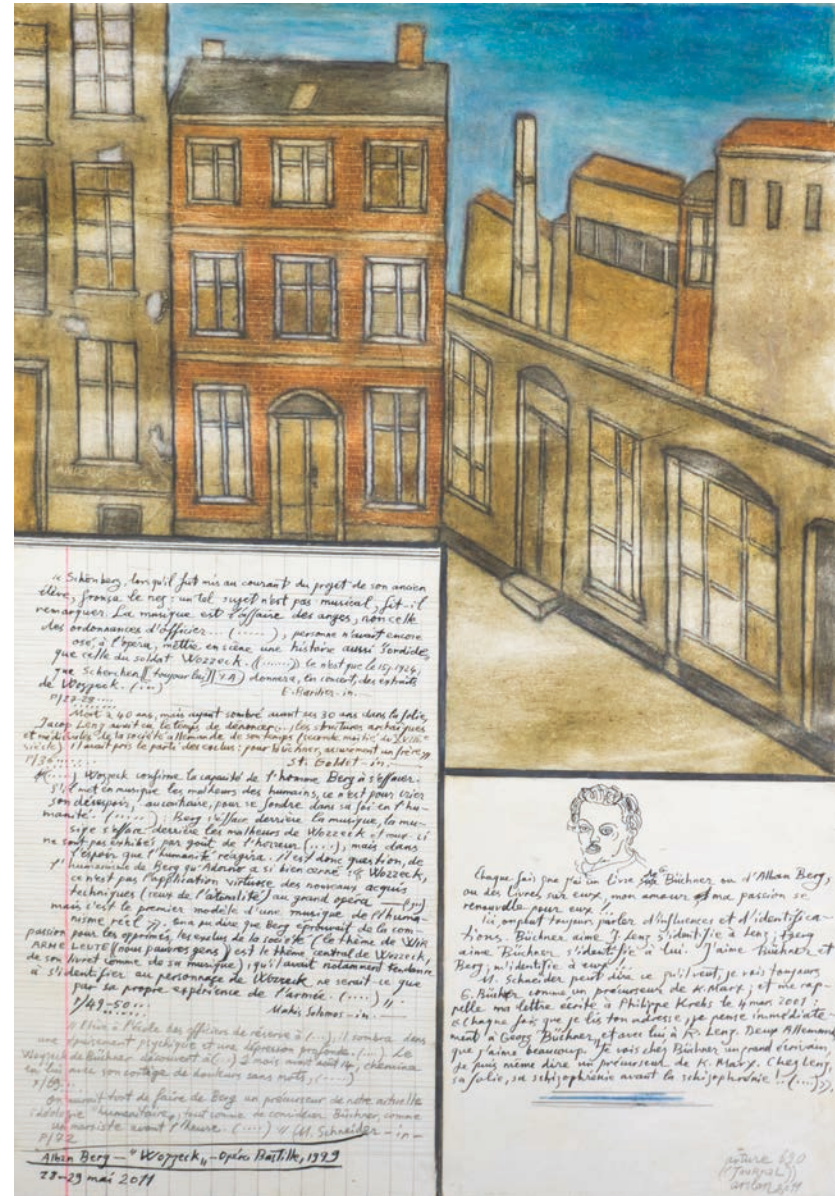 « Schönberg, lorsqu'il fut mis au courant du projet de son ancien
élève, fronça le nez : un tel sujet n'est pas musical, fit-il
remarquer. La musique est l'affaire des anges, non celle
des ordonnances d'officier... (.....), personne n'avait encore
osé, à l'opéra, mettre en scène une histoire aussi sordide,
que celle du soldat Wozzeck. (......) ce n'est que le 1924,
que Scherchen [[toujour lui]] donnera, en concert, des extraits
de Wozzeck. (...)
E. Barilier - in.
P/27-29....
Mort à 40 ans, mais ayant sombré avant ses 30 ans dans la folie,
Jacop Lenz avait eu le temps de dénoncer (...) les structures archaïques
et médiévales de la société allemande de son temps (seconde moitié du XVIIIe
siècle) il avait pris le parti des exclus : pour Büchner, assurément un frère »
P/36.......
St. Goldet - in.
« (....) Wozzeck confirme la capacité de l'homme Berg à s'effacer.
S'il met en musique les malheurs des humains, ce n'est pour crier
son désespoir, au contraire, pour se fondre dans sa foi en l'hu-
manité. (.....) : Berg s'efface derrière la musique, la mu-
sique s'efface derrière les malheurs de Wozzeck et ceux-ci
ne sont pas exhibés par goût de l'horreur (....), mais dans
l'espoir que l'humanité réagira. Il est donc question, de
l'humanisme de Berg qu'Adorno a si bien cerné : « Wozzeck,
ce n'est pas l'application virtuose des nouveaux acquis
techniques (ceux de l'atonalité) au grand opéra — (...)
mais c'est le premier modèle d'une musique de l'huma-
nisme réel ». On a pu dire que Berg éprouvait de la com-
passion pour les opprimés, les exclus de la société (le thème de WIR
ARME LEUTE (nous pauvres gens) est le thème central de Wozzeck,
de son livret comme de sa musique), qu'il avait notamment tendance
à s'identifier au personnage de Wozzeck, ne serait-ce que
par sa propre expérience de l'armée. (....) ».
P/49-50...
Makis Solomos - in.
« Elève à l'école des officiers de réserve à (...), il sombra dans
une épuisement psychique et une dépression profonde. (...) Le
Wozzeck de Büchner découvert à (..) 2 mois avant août 14, chemina
en lui avec son cortège de douleurs sans mots, (.....)
P/69...
On aurait tort de faire de Berg un précurseur de notre actuelle
idéologie "humanitaire", tout comme de considérer Büchner, comme
un marxiste avant l'heure. (....) » (M. Schneider - in -
P/72
Alban Berg — "Wozzeck" - Opéra Bastille, 1999
28-29 mai 2011
Chaque fois que j'ai un livre de G. Büchner ou d'Alban Berg,
ou des livres sur eux, mon amour et ma passion se
renouvelle pour eux...
Ici on peut toujours parler d'influences et d'identifica-
tions. Büchner aime J. Lenz s'identifie à Lenz ; Berg
aime Büchner s'identifie à lui. J'aime Büchner et
Berg, m'identifie à eux...
M. Schneider peut dire ce qu'il veut, je vois toujours
G. Büchner comme un précurseur de K. Marx ; et me rap-
pelle ma lettre écrite à Philippe Krebs le 4 mars 2001 :
« Chaque fois que je lis ton adresse, je pense immédiate-
ment à Georg Büchner, et avec lui à R. Lenz. Deux Allemands
que j'aime beaucoup. Je vois chez Büchner un grand écrivain,
je puis même dire un précurseur de K. Marx. Chez Lenz,
sa folie, sa schizophrénie avant la schizophrénie ! (...) »
arture 690
((JOURNAL))
arslan 2011